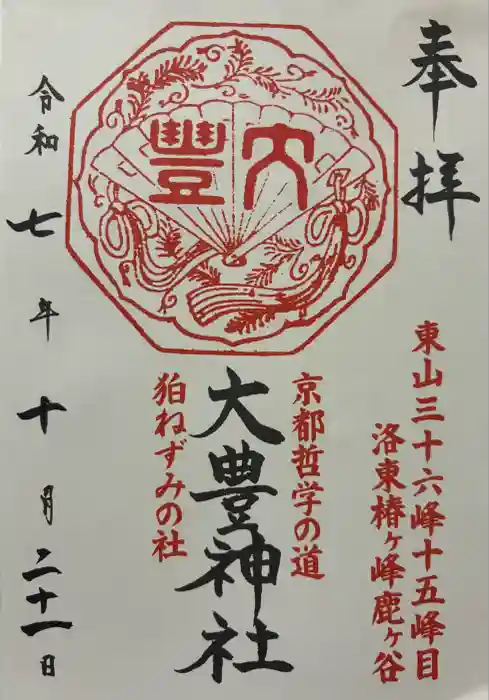 奉拝
東山三十六峰十五峰目
洛東椿ヶ峰鹿ヶ谷
京都哲学の道
大豊
大豊神社
狛ねずみの社
令和七年十月二十一日